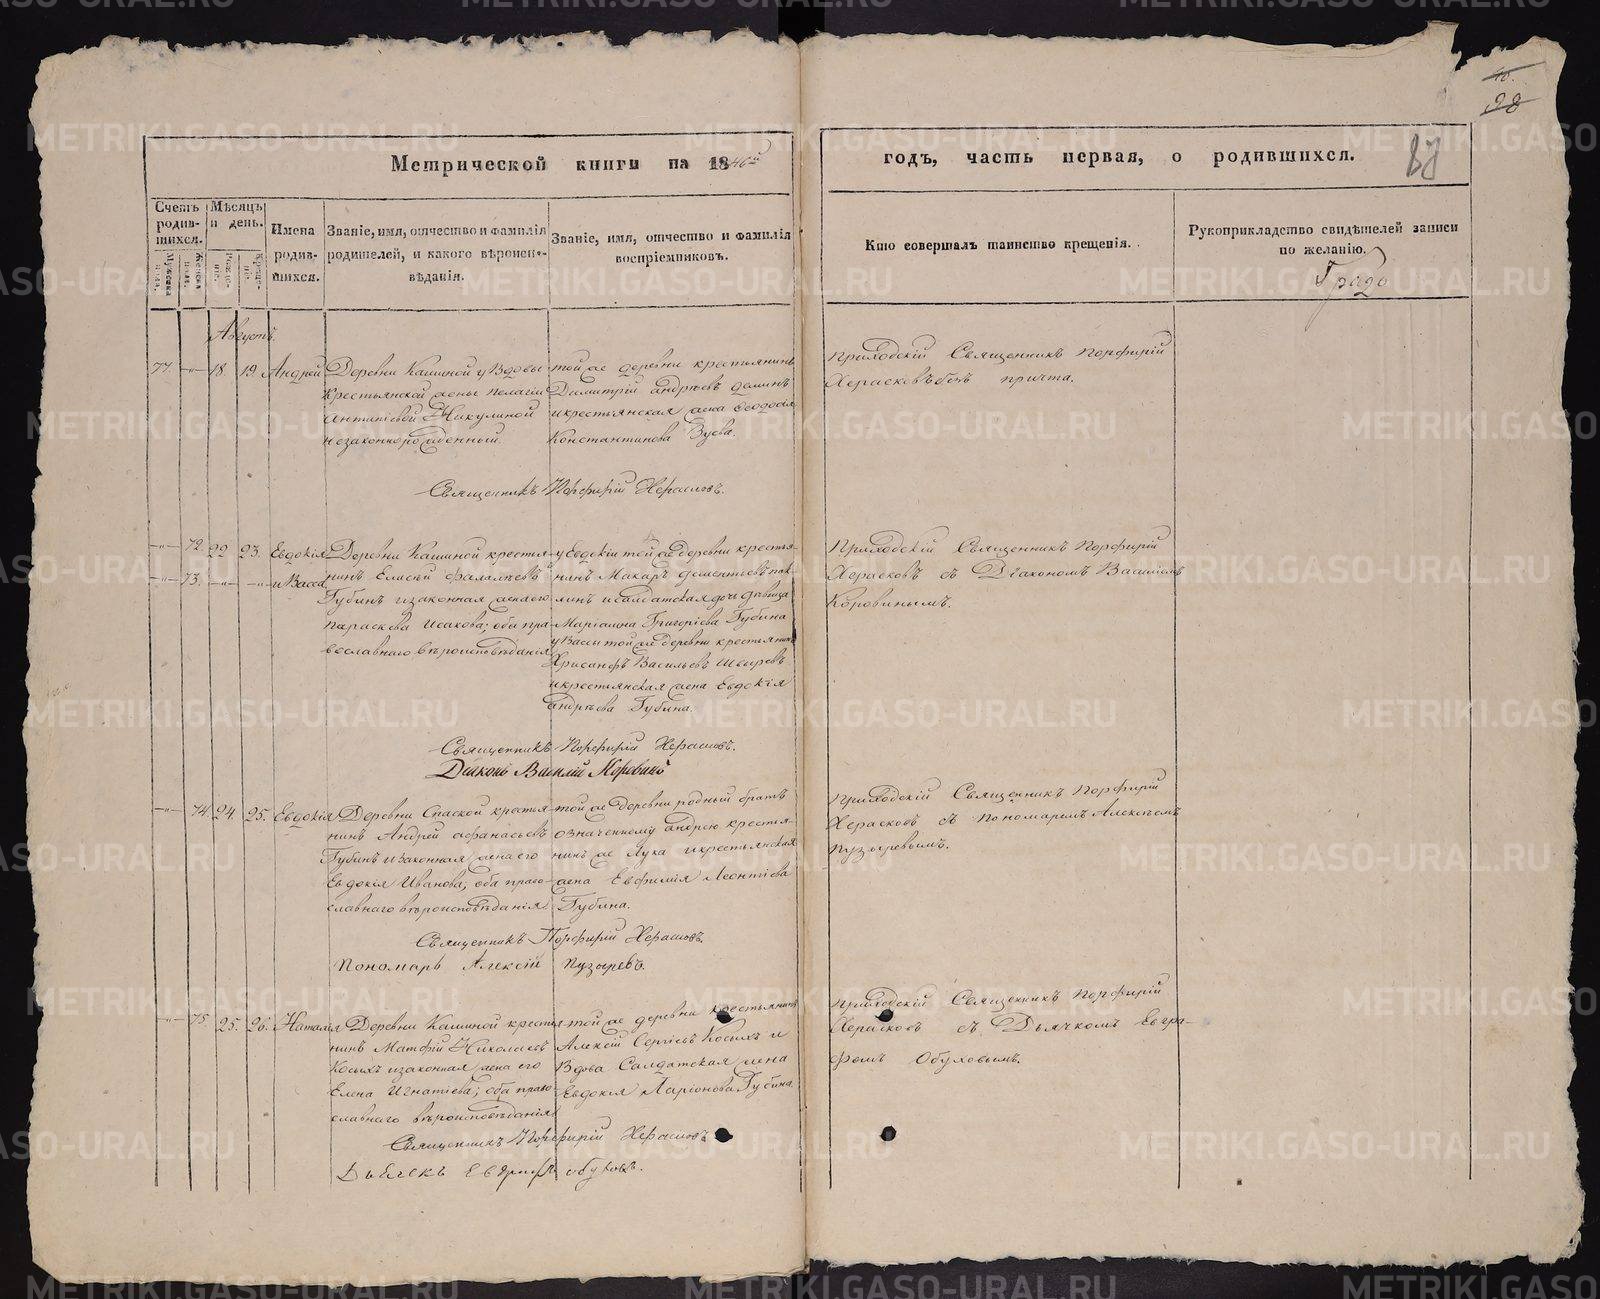 98
Метрической книги на 1846й
годъ, часть первая, о родившихся.
Счетъ родив-шихся.
Мужеска пола.
Женска пола.
Мѣсяцъ и день.
Рожде-ніе.
Креще-ніе.
Имена родив-шихся.
Званіе, имя, отчество и фамилія
родителей, и какого вѣроиспо-
вѣданія.
Званіе, имя, отчество и фамилія
воспріемниковъ.
Кто совершалъ таинство крещенія.
Рукоприкладство свидѣтелей записи
по желанію.
Градо
Августъ.
77. 18. 19. Андрей
Деревни Кашиной у Вдовы
крестьянской жены Пелагіи
Антипіевой Никулиной
незаконнорожденный.
той же деревни крестьянинъ
Димитрій Андреевъ Деминъ
и крестьянская жена Ѳеодосія
Константинова Зуева.
Приходскій Священникъ Порфирій
Херасковъ безъ причта.
Священникъ Порфирій Херасковъ.
72. 22. 23. Евдокія
73. и Васса
Деревни Кашиной крестья-
нинъ Елисѣй Фалалѣевъ
Губинъ и законная жена его
Параскева Исакова; оба пра-
вославнаго вѣроисповѣданія
у Евдокіи той же деревни крестья-
нинъ Макаръ Дементьевъ
и солдатская дочь дѣвица
Маріамна Григоріева Губина
у Вассы той же деревни крестьянинъ
Хрисанфъ Васильевъ Шыревъ
и крестьянская жена Евдокія
Андреева Губина.
Приходскій Священникъ Порфирій
Херасковъ съ Діакономъ Василіемъ
Коровинымъ.
Священникъ Порфирій Херасковъ.
Діаконъ Василій Коровинъ
74. 24. 25. Евдокія
Деревни Спаской крестья-
нинъ Андрей Афанасьевъ
Губинъ и законная жена его
Евдокія Иванова; оба право-
славнаго вѣроисповѣданія
той же деревни родный братъ
означенному Андрею крестья-
нинъ же Лука и крестьянская
жена Евфимія Леонтіева
Губина.
Приходскій Священникъ Порфирій
Херасковъ съ Пономаремъ Алексѣемъ
Пузыревымъ.
Священникъ Порфирій Херасковъ.
Пономарь Алексій Пузыревъ.
75. 25. 26. Наталія
Деревни Кашиной крестья-
нинъ Матфій Николаевъ
Косыхъ и законная жена его
Елена Игнатіева; оба право-
славнаго вѣроисповѣданія
той же деревни крестьянинъ
Алексій Сергіевъ Косыхъ и
Вдова Солдатская жена
Евдокія Ларіонова Губина.
Приходскій Священникъ Порфирій
Херасковъ съ Дьячкомъ Евгра-
фомъ Обуховымъ.
Священникъ Порфирій Херасковъ
Дьячекъ Евграфъ Обуховъ.
METRIKI.GASO-URAL.RU